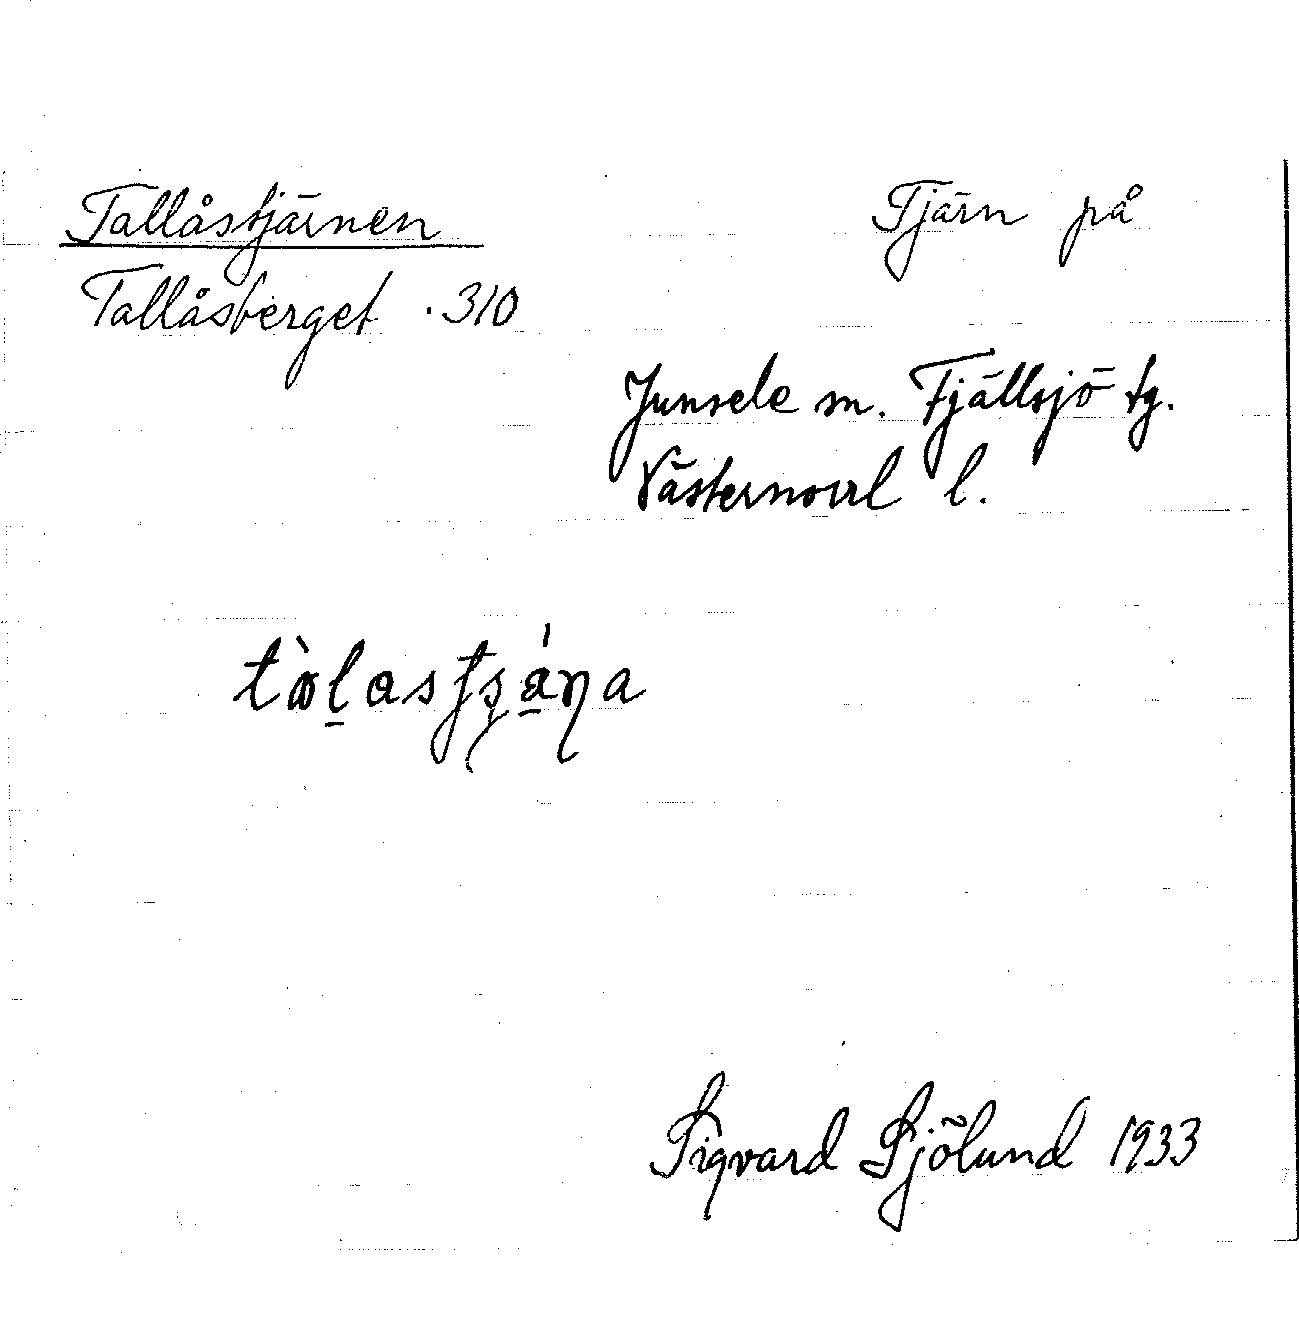 Tallåstjärnen Tjärn på
Tallåsberget . 310
Junsele sn. Fjällsjö tg.
Västernorrl l.
Sigvard Sjölund 1933